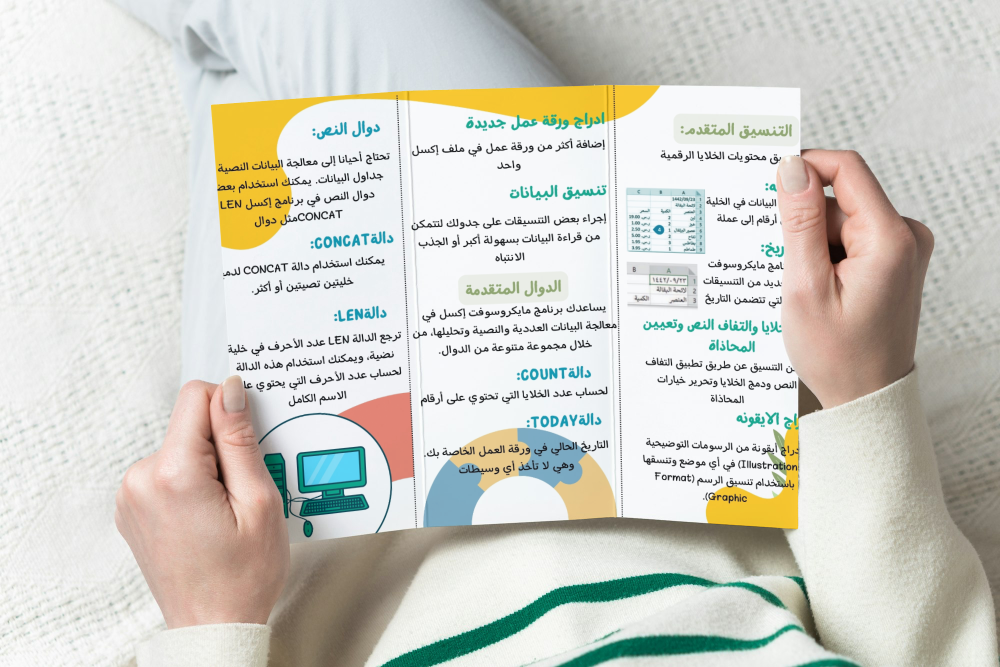 التنسيق المتقدم:
محتويات الخلايا الرقمية
البيانات في الخلية
أرقام إلى عملة
مايكروسوفت
من التنسيقات
تتضمن التاريخ
والتفاف النص وتعيين
المحاذاة
التنسيق عن طريق تطبيق التفاف
النص ودمج الخلايا وتحرير خيارات
المحاذاة
الايقونه
أيقونة من الرسومات التوضيحية
(Illustration) في أي موضع وتنسقها
باستخدام تنسيق الرسم (Format
Graphic).
ادراج ورقة عمل جديدة
إضافة أكثر من ورقة عمل في ملف إكسل
واحد
تنسيق البيانات
إجراء بعض التنسيقات على جدولك لتتمكن
من قراءة البيانات بسهولة أكبر أو الجذب
الانتباه
الدوال المتقدمة
يساعدك برنامج مايكروسوفت إكسل في
معالجة البيانات العددية والنصية وتحليلها، من
خلال مجموعة متنوعة من الدوال.
دالةCOUNT:
لحساب عدد الخلايا التي تحتوي على أرقام
دالةTODAY:
التاريخ الحالي في ورقة العمل الخاصة بك.
وهي لا تأخذ أي وسيطات
دوال النص:
تحتاج أحيانا إلى معالجة البيانات النصية
جداول البيانات. يمكنك استخدام بعض
دوال النص في برنامج إكسل LEN
CONCATمثل دوال
دالةCONCAT:
يمكنك استخدام دالة CONCAT
خليتين تصيتين أو أكثر.
دالةLEN:
ترجع الدالة LEN عدد الأحرف في خلية
نضية، ويمكنك استخدام هذه الدالة
لحساب عدد الأحرف التي يحتوي
الاسم الكامل